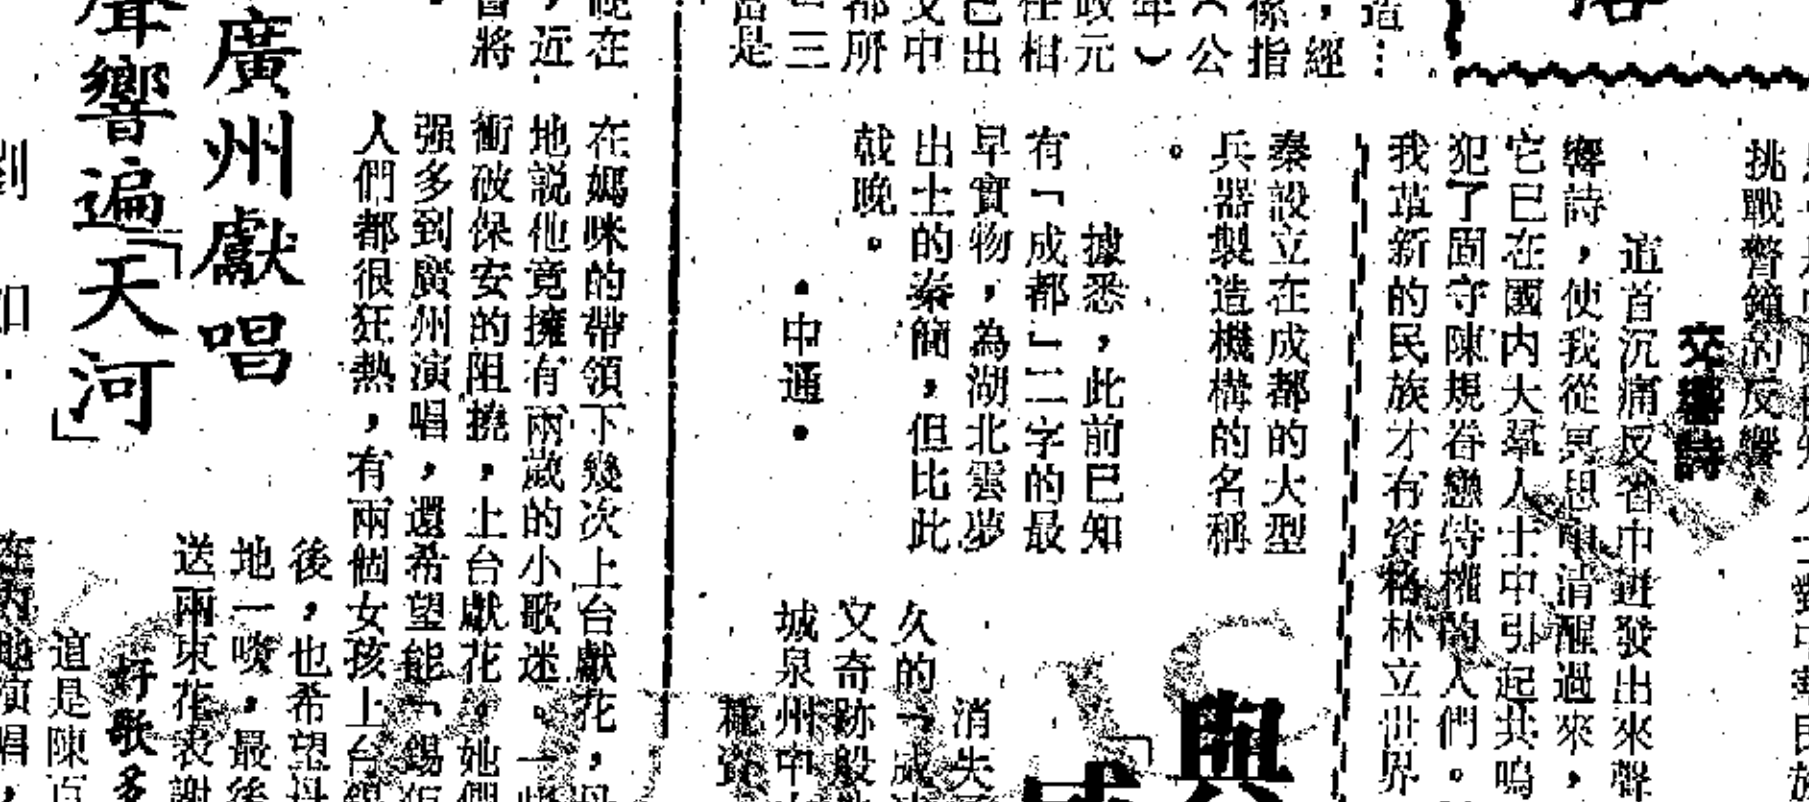 挑戰警鐘的反響。
交響詩
這首沉痛反省中迸發出來聲
響詩，使我從冥思中清醒過來，
它已在國內大羣人士中引起共鳴
犯了固守陳規眷戀特權的人們。
我革新的民族才有資格林立世界
係指
（公
年）
政元
任相
已出
文中
都所
三
當是
秦設立在成都的大型
兵器製造機構的名稱
。
據悉，此前已知
有「成都」二字的最
早實物，為湖北雲夢
出土的秦簡，但比此
戟晚。
•中通•
與
消失
久的「成
又奇跡般
城泉州中
晚在
，近
會將
在媽咪的帶領下幾次上台獻花，
地說他竟擁有兩歲的小歌迷。一
衝破保安的阻撓，上台獻花。她們
强多到廣州演唱，還希望能「錫
人們都很狂熱，有兩個女孩上台
後，也希望
地一啖，最後
送兩束花表謝
好歌多
這是陳百
廣州獻唱
聲響遍「天河」